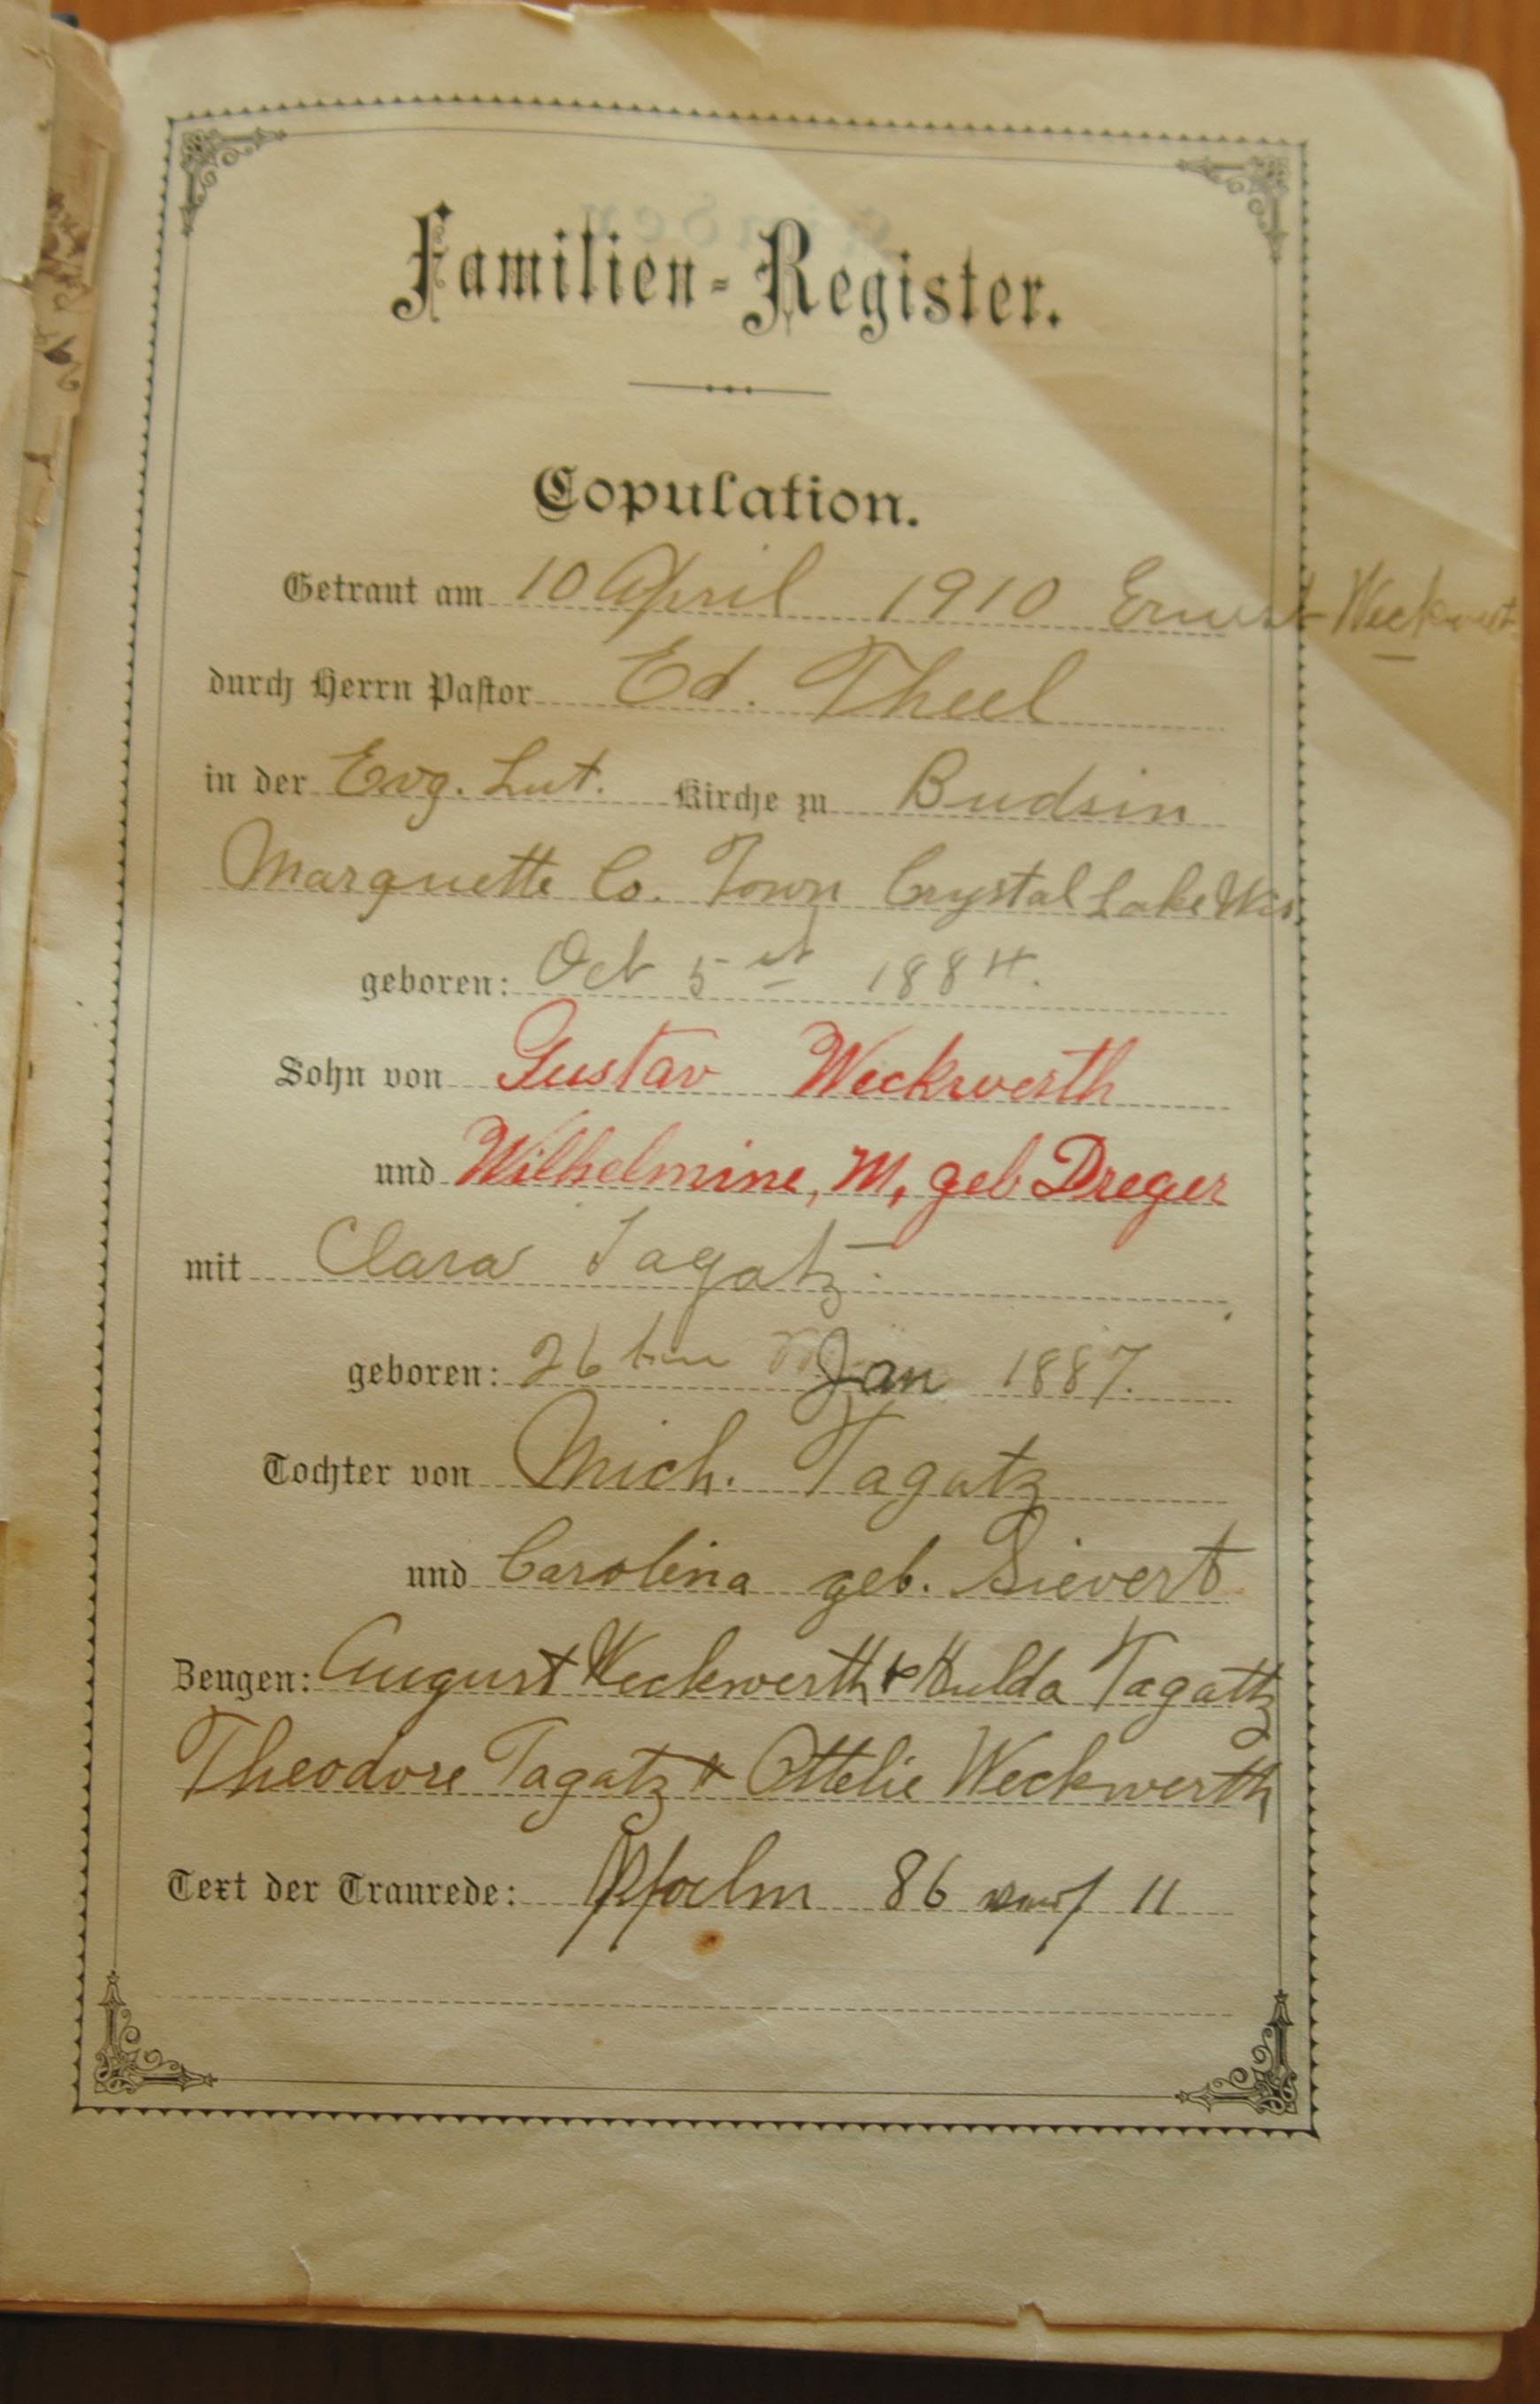 Familien-Register.
Copulation.
Getraut am 10 April 1910 Ernest Weckwert
durch Herrn Pastor Ed. Theel
in der Evg. Lut. Kirche zu Budsin
Marquette Co. Town Crystal Lake Wis.
geboren: Oct 5 1884.
Sohn von Gustav Weckwerth
und Wilhelmine, M, geb Dreger
mit Clara Tagatz.
geboren: 26 ten Jan 1887.
Tochter von Mich. Tagatz
und Carolina geb. Sievert
Zeugen: August Weckwerth & Hulda Tagattz
Theodore Tagatz & Ottelie Weckwerth
Text der Traurede: Psalm 86 11